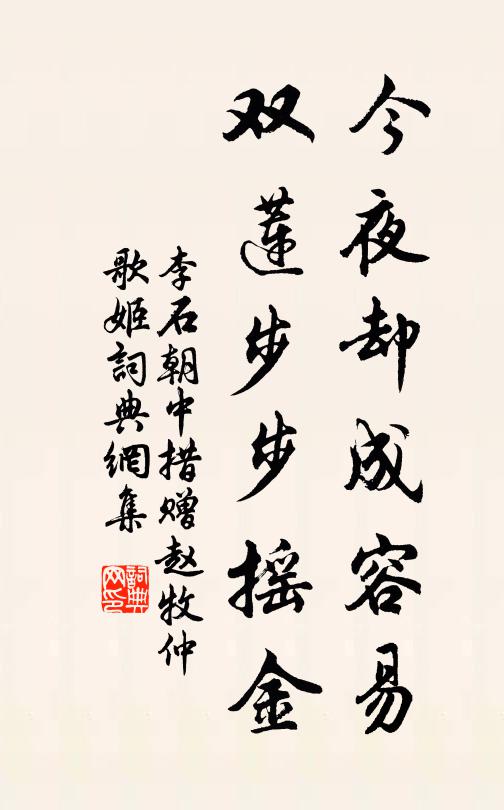 今夜却成容易
双莲步步摇金
李石朝中措赠赵牧仲
歌姬詞典網集
詞典网印